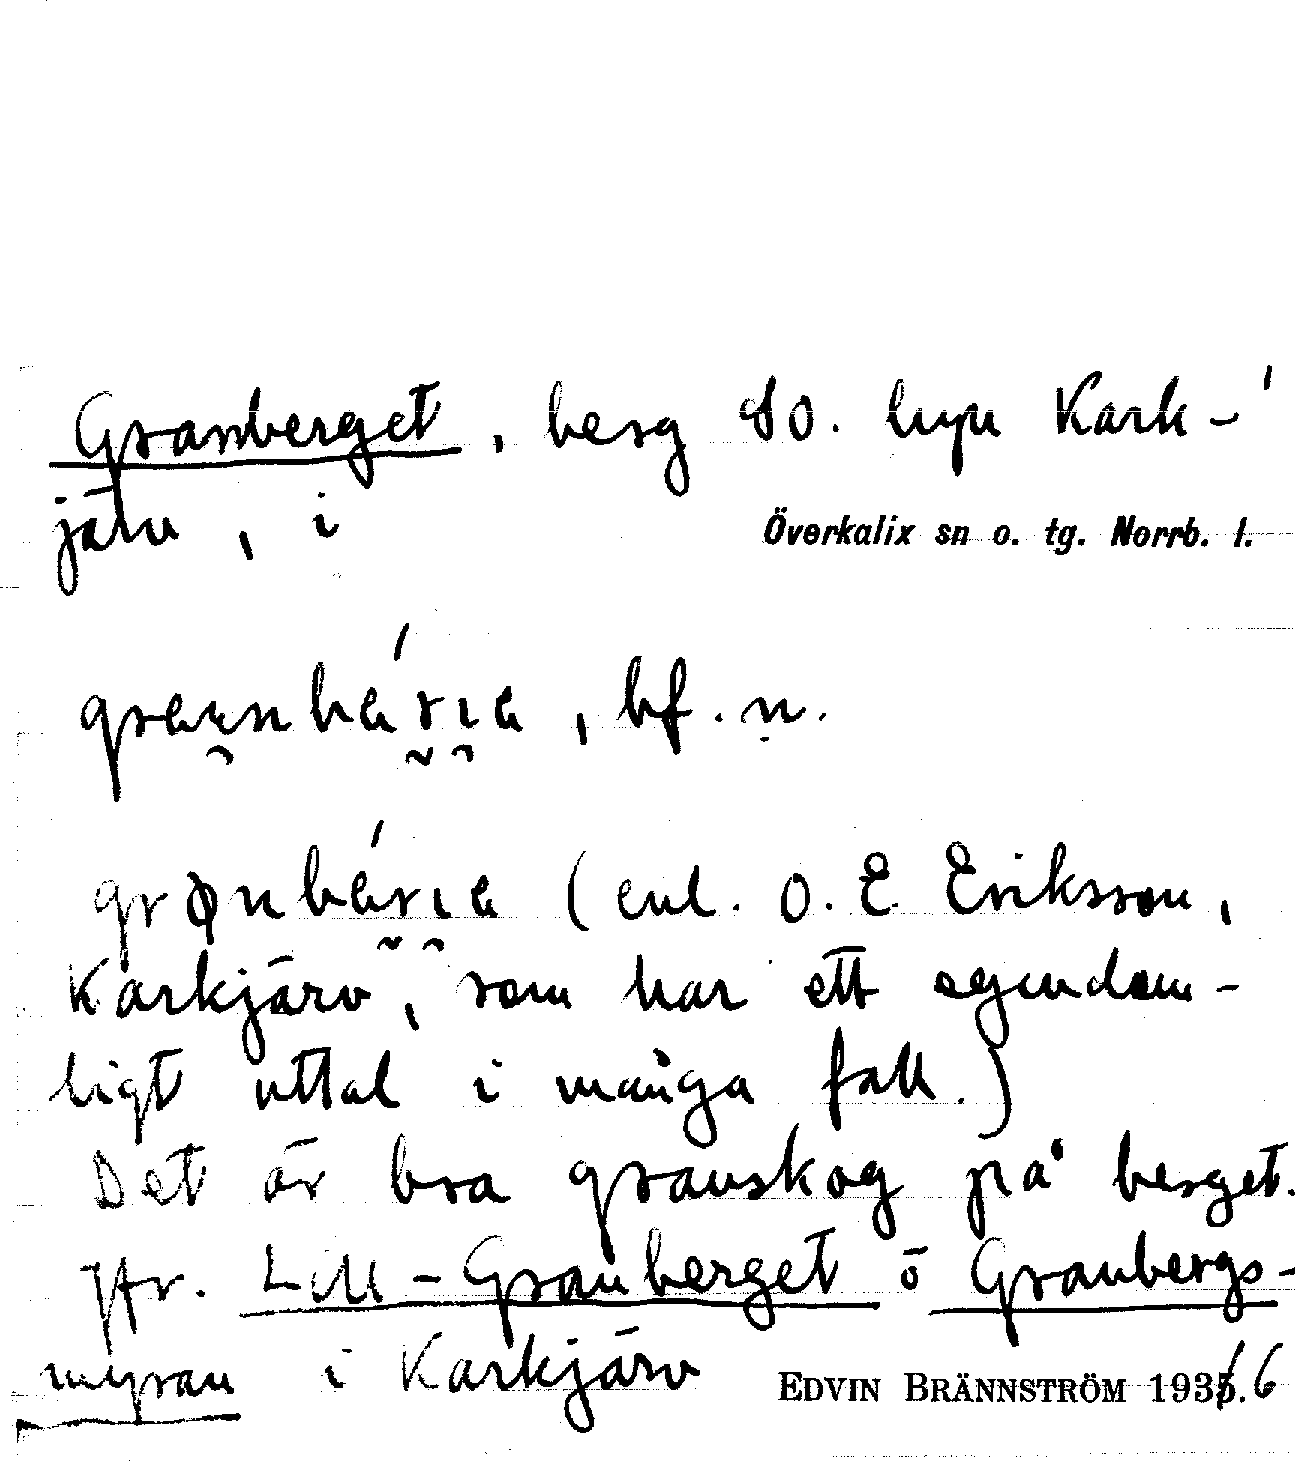 Granberget, berg SO. byn Kark-
järv, i Överkalix sn o. tg. Norrb. l.
bf. n.
(enl. O. E Eriksson,
Karkjärv, som har ett egendom-
ligt uttal i många fall.)
Det är bra granskog på berget.
Jfr. Lill-Granberget o Granbergs-
myran i Karkjärv EDVIN BRÄNNSTRÖM 1936.